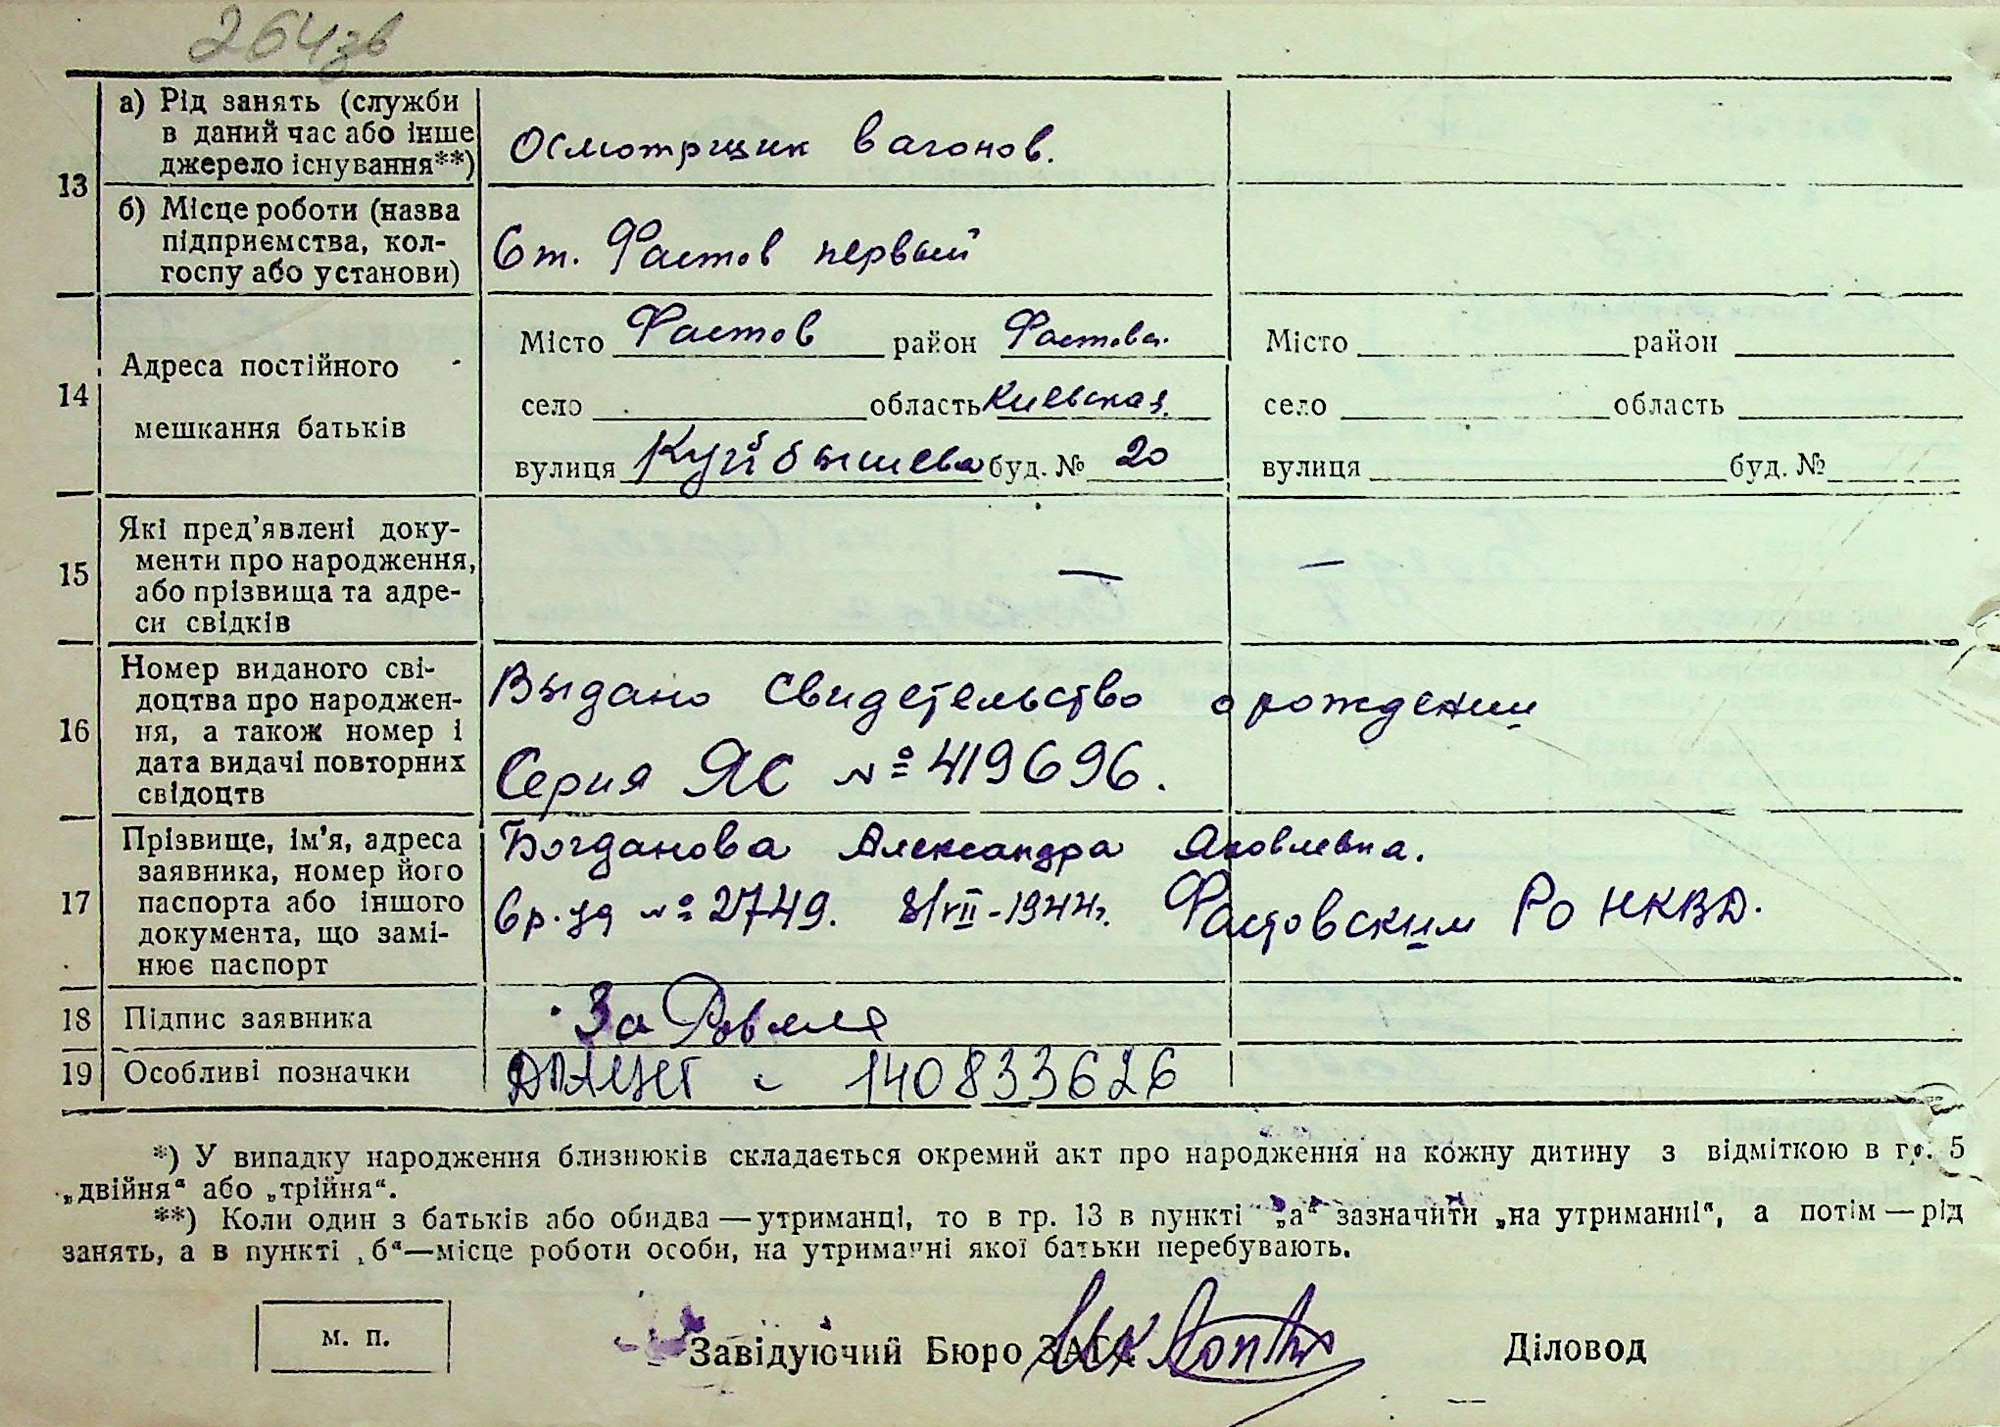 264зв
13
а) Рід занять (служби
в даний час або інше
джерело існування**)
Осмотрщик вагонов.
б) Місце роботи (назва
підприємства, кол-
госпу або установи)
Ст. Фастов первый
14
Адреса постійного
мешкання батьків
Місто Фастов район Фастовск.
село область Киевская
вулиця Куйбышева буд. № 20
Місто район
село область
вулиця буд. №
15
Які пред’явлені доку-
менти про народження,
або прізвища та адре-
си свідків
— —
16
Номер виданого сві-
доцтва про народжен-
ня, а також номер і
дата видачі повторних
свідоцтв
Выдано свидетельство о рождении
Серия ЯС № 419696.
17
Прізвище, ім’я, адреса
заявника, номер його
паспорта або іншого
документа, що замі-
нює паспорт
Богданова Александра Яковлевна.
вр. уд № 2749. 8/VII-1944г. Фастовским РО НКВД.
18 Підпис заявника
За
19 Особливі позначки
140833626
*) У випадку народження близнюків складається окремий акт про народження на кожну дитину з відміткою в гр. 5
„двійня“ або „трійня“.
**) Коли один з батьків або обидва — утриманці, то в гр. 13 в пункті „а“ зазначити „на утриманні“, а потім — рід
занять, а в пункті „б“—місце роботи особи, на утриманні якої батьки перебувають.
м. п.
Завідуючий Бюро ЗАГС
Діловод